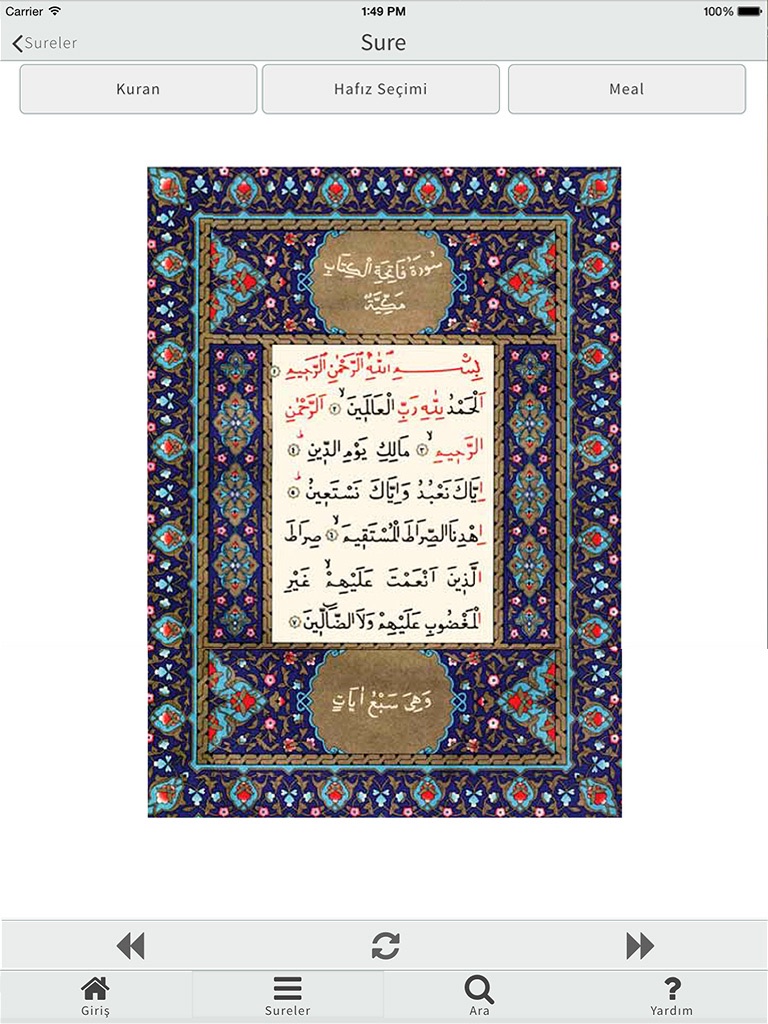 Carrier 1:49 PM 100%
Sureler Sure
Kuran Hafız Seçimi Meal
سُورَةُ فَاتِحَةِ الْكِتَابِ
مَكِّيَّةٌ
بِسْــــمِ اللّٰهِ الرَّحْمٰنِ الرَّحٖيمِ ﴿١﴾
اَلْحَمْدُ لِلّٰهِ رَبِّ الْعَالَمٖينَۙ ﴿٢﴾ اَلرَّحْمٰنِ
الرَّحٖيمِۙ ﴿٣﴾ مَالِكِ يَوْمِ الدّٖينِؕ ﴿٤﴾
اِيَّاكَ نَعْبُدُ وَاِيَّاكَ نَسْتَعٖينُؕ ﴿٥﴾
اِهْدِنَا الصِّرَاطَ الْمُسْتَقٖيمَۙ ﴿٦﴾ صِرَاطَ
الَّذٖينَ اَنْعَمْتَ عَلَيْهِمْۙ غَيْرِ
الْمَغْضُوبِ عَلَيْهِمْ وَلَا الضَّٓالّٖينَ ﴿٧﴾
وَهِيَ سَبْعُ اٰيَاتٍ
Giriş Sureler Ara Yardım